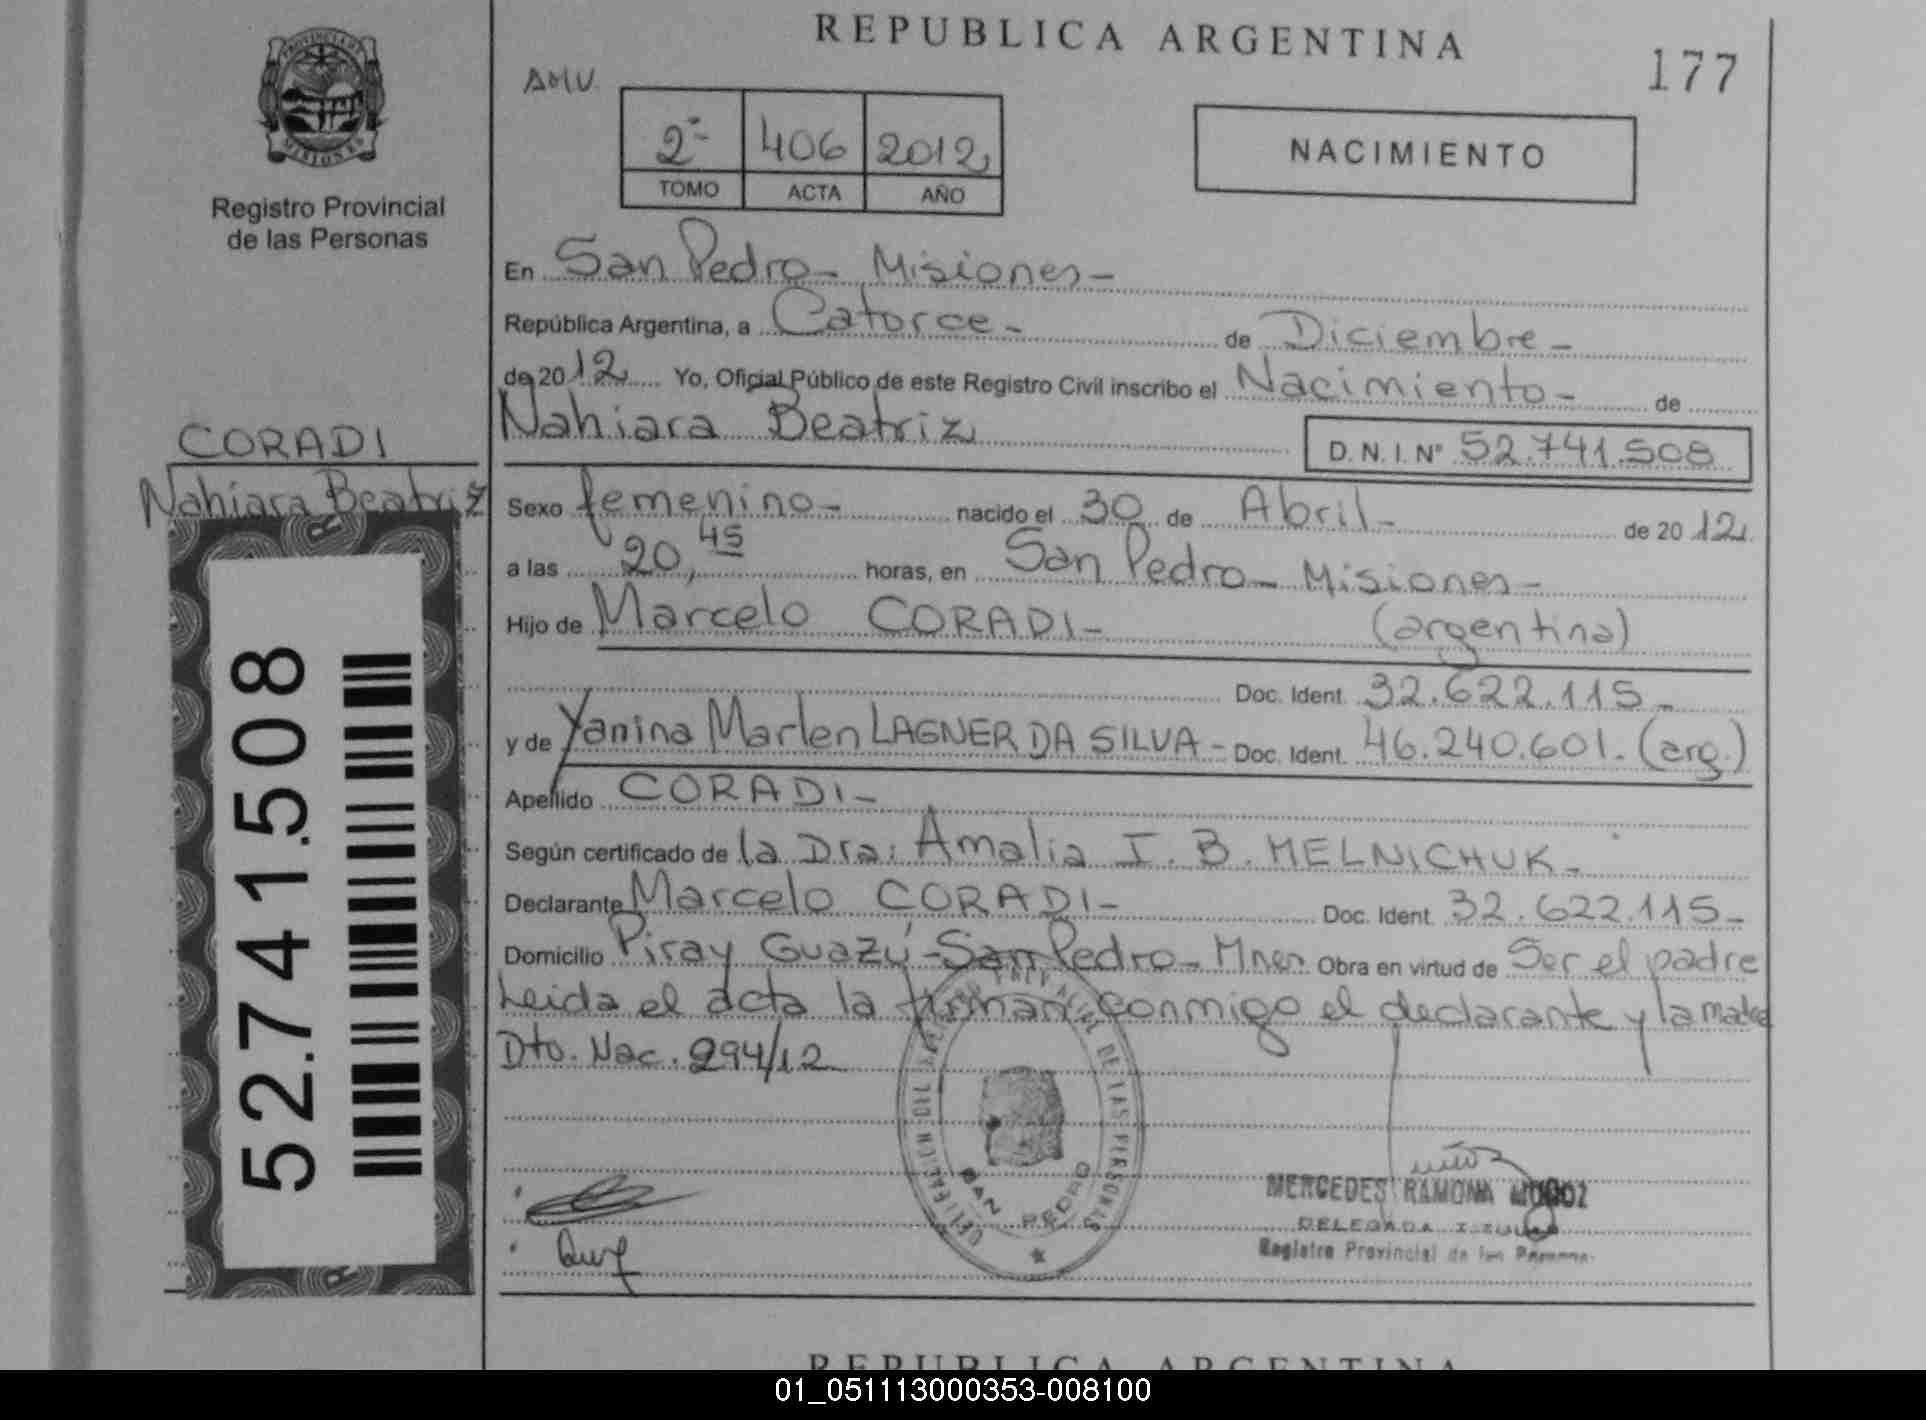 REPUBLICA ARGENTINA
177
AMV.
2ª 406 2012
TOMO ACTA AÑO
NACIMIENTO
PROVINCIA DE MISIONES
Registro Provincial
de las Personas
En San Pedro - Misiones -
República Argentina, a Catorce - de Diciembre -
de 2012 Yo, Oficial Público de este Registro Civil inscribo el Nacimiento - de
Nahiara Beatriz D.N.I. Nº 52.741.508
CORADI
Nahiara Beatriz
Sexo femenino - nacido el 30 de Abril - de 2012
a las 20,45 horas, en San Pedro - Misiones -
Hijo de Marcelo CORADI - (argentina)
Doc. Ident. 32.622.115 -
y de Yanina Marlen LAGNER DA SILVA - Doc. Ident. 46.240.601. (arg.)
Apellido CORADI -
Según certificado de la Dra: Amalia I. B. MELNICHUK -
Declarante Marcelo CORADI - Doc. Ident. 32.622.115 -
Domicilio Piray Guazú - San Pedro - Mnes Obra en virtud de Ser el padre
Leida el acta la firman conmigo el declarante y la madre
Dto. Nac. 294/12
52.741.508
DELEGACION DEL REGISTRO PROVINCIAL DE LAS PERSONAS
SAN PEDRO
MERCEDES RAMONA MUÑOZ
DELEGADA
Registro Provincial de las Personas
REPUBLICA ARGENTINA
01_051113000353-008100